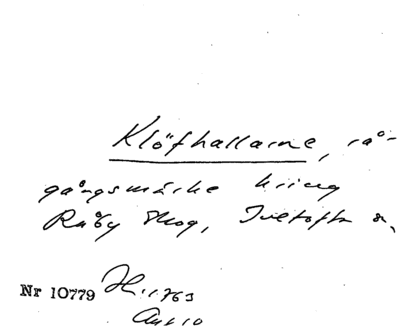 Klöfhallarne, rå-
gångsmärke kring
Råby skog, Tvetofta s,
Nr 10779 H. 1763
Akt 10